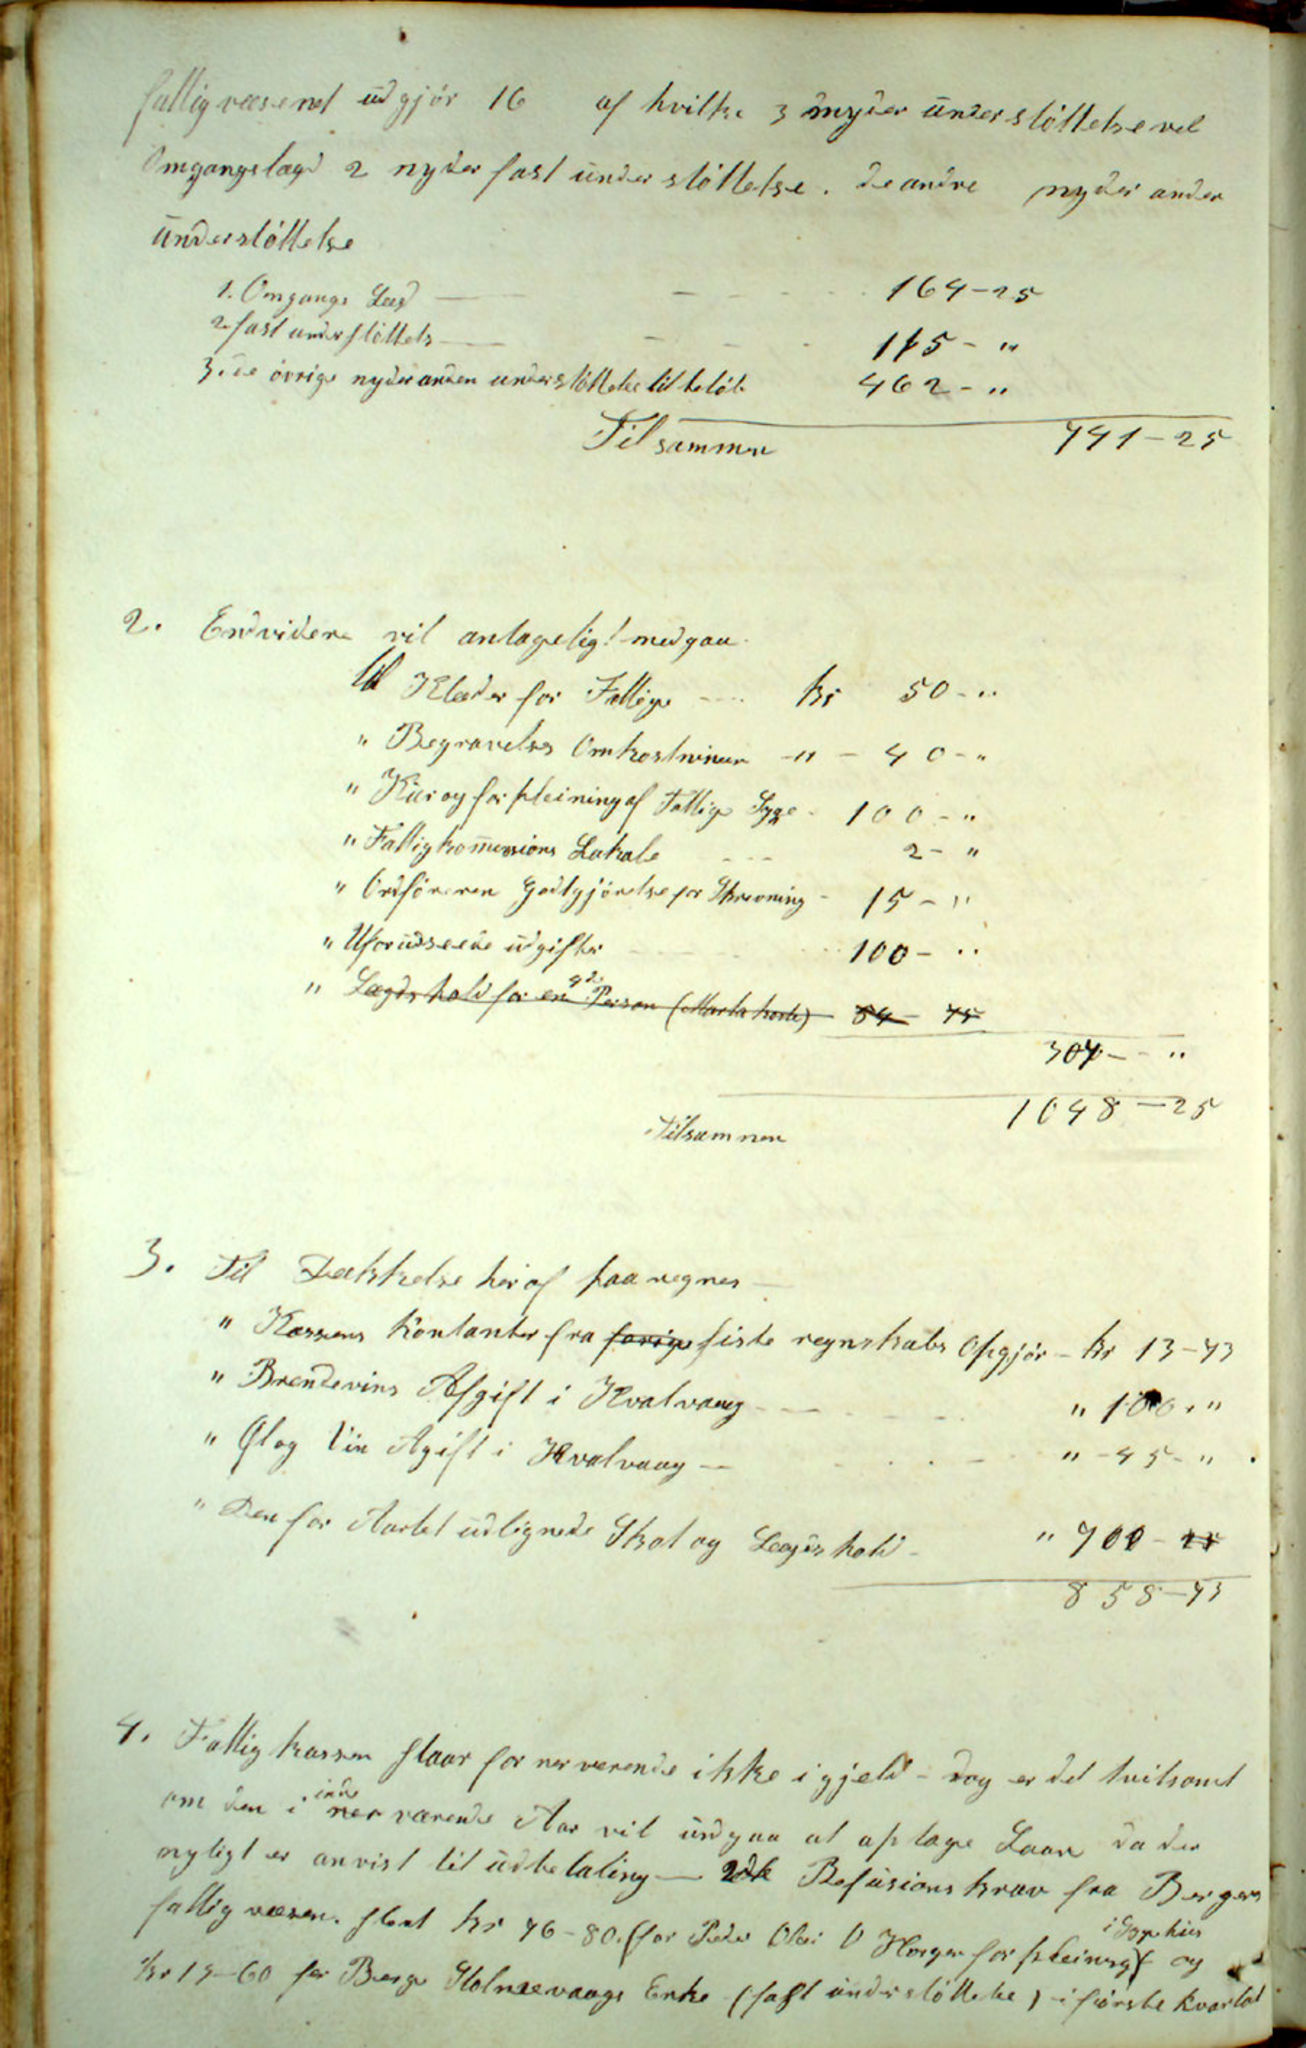 fattigvæsenet udgjör 16 af hvilke 3 nyder understöttelse ved
Omgangslægd 2 nyder fast understöttelse. de andre nyder anden
understöttelse
1. Omgangs Lægd — 164-25
2. fast understöttels — 115 - "
3. de övrige nyder anden understöttelse til beløb 462 - "
Tilsammen 741-25
2. Endvidere vil antageligt medgaa
til Klæder for Fattige kr 50 - "
" Begravelses Omkostninger - " - 40 - "
" Kur og forpleining af Fattige Syge - 100 - "
" Fattigkommissions Lokale 2 - "
" Ordföreren Godtgjörelse for Skrivning - 15 - "
" Uforudseede udgifter 100 - "
" Lægds hold for en Person (Marta 84 - 75
307 - "
Tilsammen 1048-25
3. Til Dækkelse heraf paaregnes —
" Kassens Kontanter fra forige siste regnskabs Opgjör - kr 13-73
" Brendevins Afgift i Kvalvaag " 100 - "
" Øl og Vin Agift i Kvalvaag — " - 45 - "
" Den for Aaret udlignede Skat og Lægdshold - " 700 - 25
858-73
4. Fattigkassen staar for nerverende ikke i gjeld - dog er det tvilsomt
om den i inde nerværende Aar vil undgaa at optage Laan da der
nyligt er anvist til udbetaling — 2de Refusions krav fra Bergens
fattigvæsen. stort kr 76-80. (for Peder Olai Horgen forpleining i Sygehus) og
kr 15-60 for Berge Stolnævaags Enke (fast understöttelse) - i förste kvartal